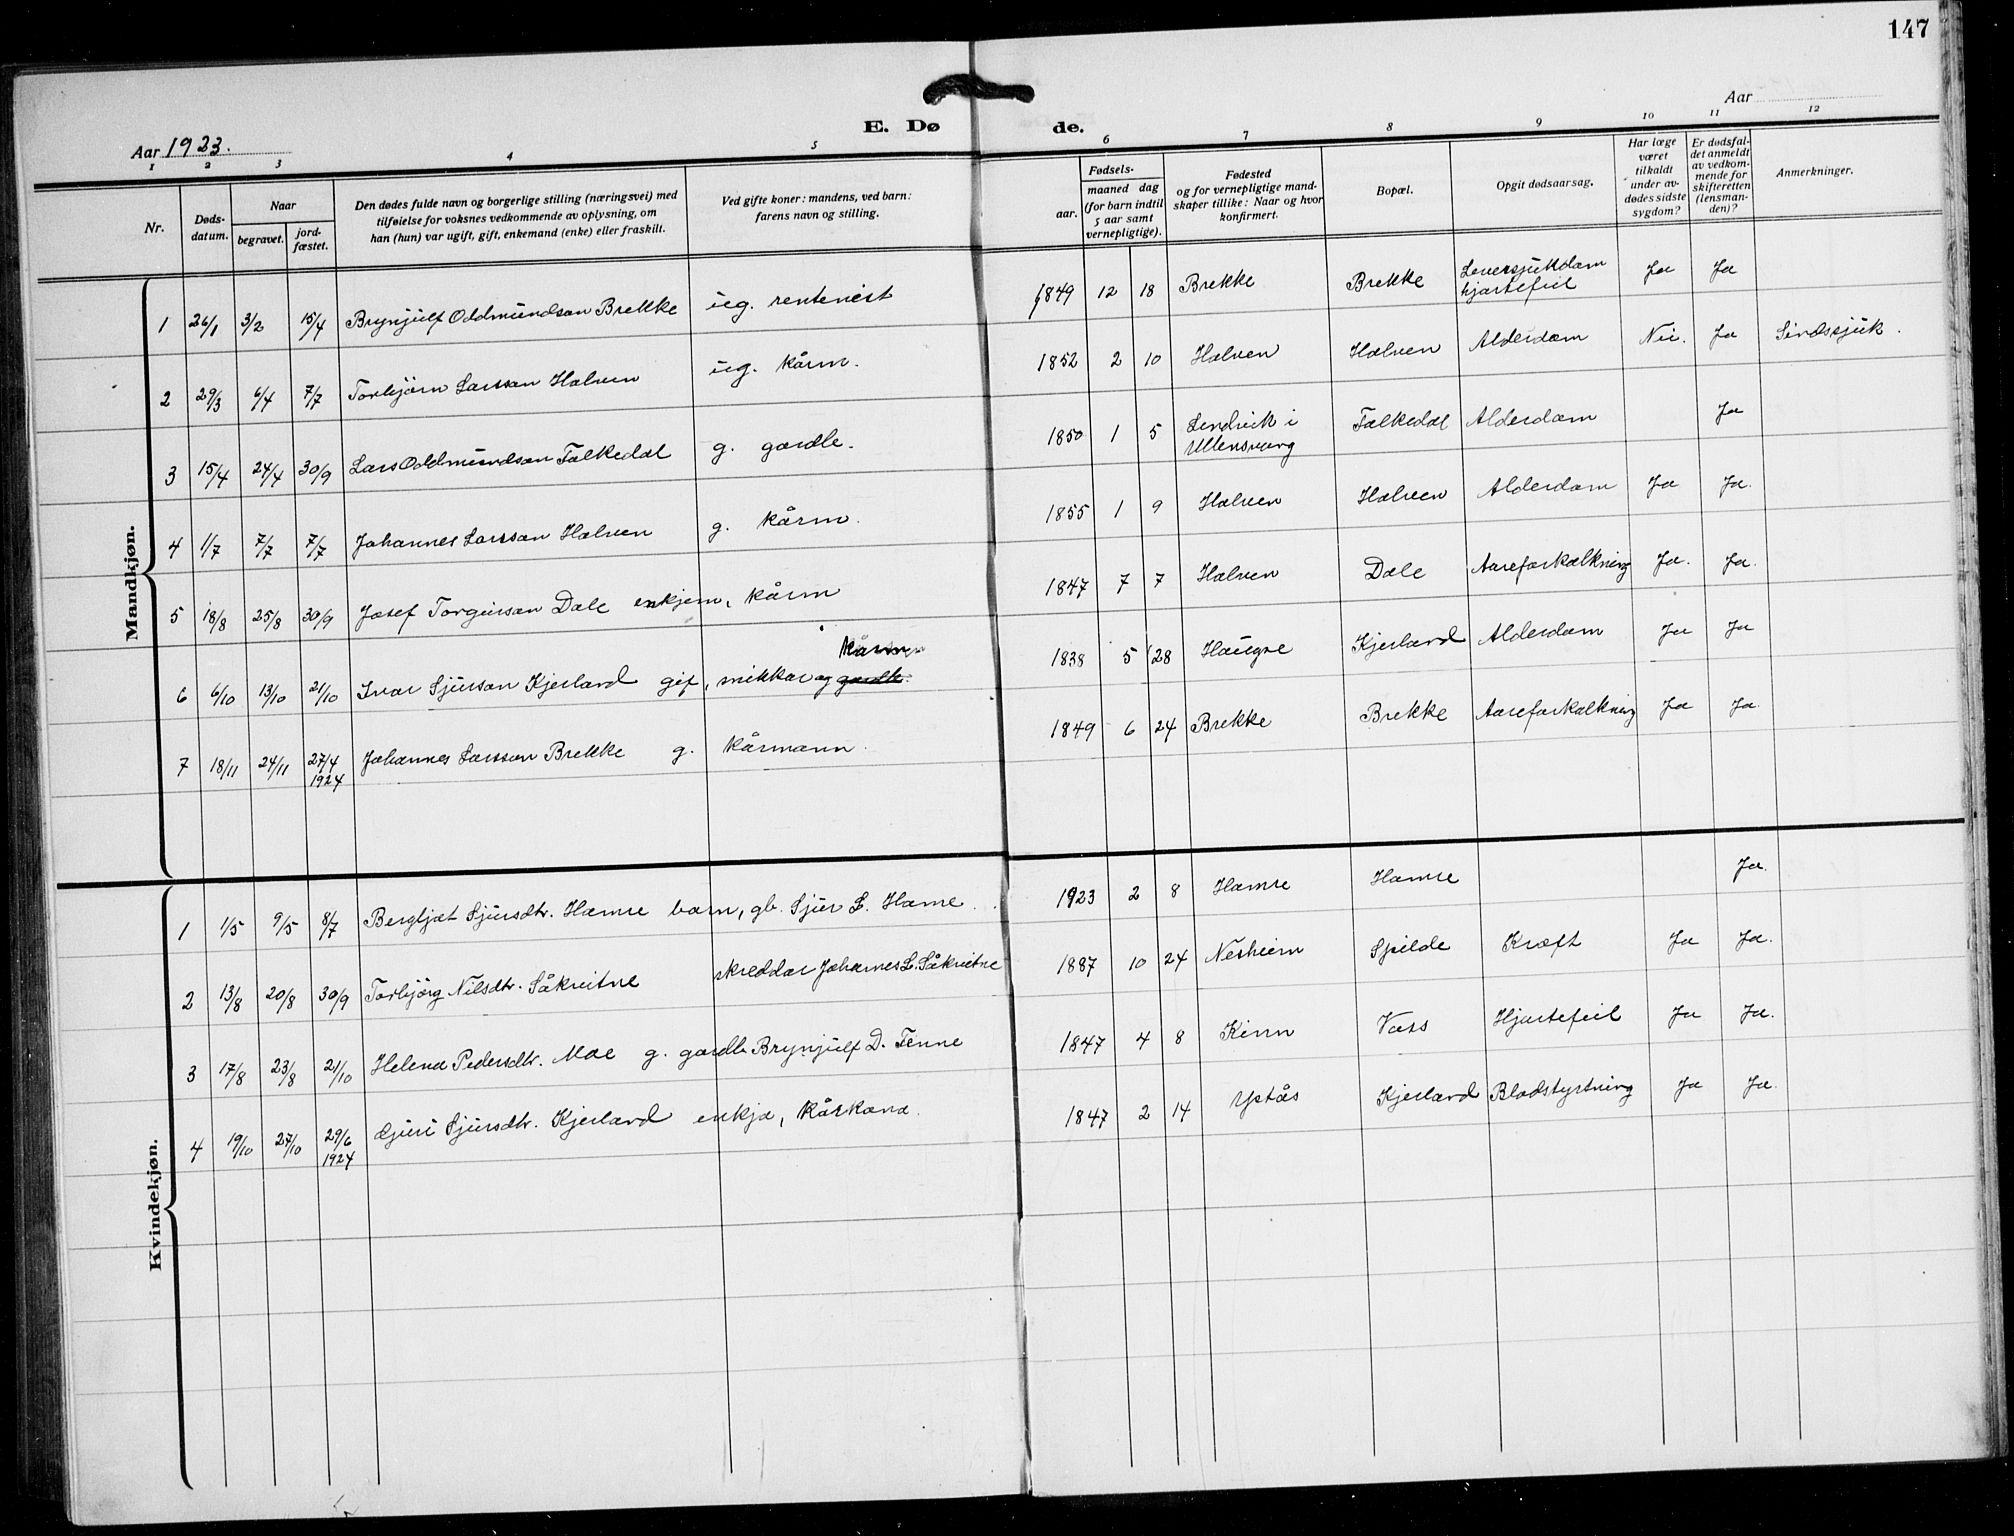 147
Aar 1923.
E. Døde.
Aar
1 2 3 4 5 6 7 8 9 10 11 12
Nr.
Døds-
datum.
Naar
begravet.
jord-
fæstet.
Den dødes fulde navn og borgerlige stilling (næringsvei) med
tilføielse for voksnes vedkommende av oplysning, om
han (hun) var ugift, gift, enkemand (enke) eller fraskilt.
Ved gifte koner: mandens, ved barn:
farens navn og stilling.
Fødsels-
aar.
maaned dag
(for barn indtil
5 aar samt
vernepligtige).
Fødested
og for vernepligtige mand-
skaper tillike: Naar og hvor
konfirmert.
Bopæl.
Opgit dødsaarsag.
Har læge
været
tilkaldt
under av-
dødes sidste
sygdom?
Er dødsfal-
det anmeldt
av vedkom-
mende for
skifteretten
(lensman-
den)?
Anmerkninger.
Mandkjøn.
1 26/1 3/2 15/4 Brynjulf Oddmundson Brekke ug. rentenist 1849 12 18 Brekke Brekke Leversjukdom Ja Ja
hjartefeil
2 29/3 6/4 7/7 Torbjörn Larsson Halven ug. kårm. 1852 2 10 Halven Halven Alderdom Nei. Ja Sindssjuk.
3 15/4 24/4 30/9 Lars Oddmundson Folkedal g. gardbr. 1850 1 5 Lendvik i Folkedal Alderdom Ja
Ullensvang
4 1/7 7/7 7/7 Johannes Larsson Halven g. kårm. 1855 1 9 Halven Halven Alderdom Ja Ja.
5 18/8 25/8 30/9 Josef Torgeirson Dale enkjem, kårm 1847 7 7 Halven Dale Aareforkalkning Ja. Ja.
kårm
6 6/10 13/10 21/10 Ivar Sjurson Kjerland gif, snikkar og gardbr. 1838 5 28 Haugse Kjerland Alderdom Ja Ja
7 18/11 24/11 27/4 Johannes Larsson Brekke g. kårmann. 1849 6 24 Brekke Brekke Aareforkalkning Ja Ja
1924
Kvindekjøn.
1 1/5 9/5 8/7 Bergljot Sjursdtr. Hamre barn, gb. Sjur L. Hamre. 1923 2 8 Hamre Hamre Ja.
2 13/8 20/8 30/9 Torbjörg Nilsdtr. Såkvitne skreddar Johannes L. Såkvitne 1887 10 24 Nesheim Spilde Kræft Ja Ja.
3 17/8 23/8 21/10 Helena Pedersdtr. Moe g. gardb. Brynjulf D. Tenne 1847 4 8 Kinn Voss Hjartefeil Ja Ja.
4 19/10 27/10 29/6 Guri Sjursdtr. Kjerland enkja, kårkona. 1847 2 14 Ystås Kjerland Blodstyrtning Ja Ja.
1924